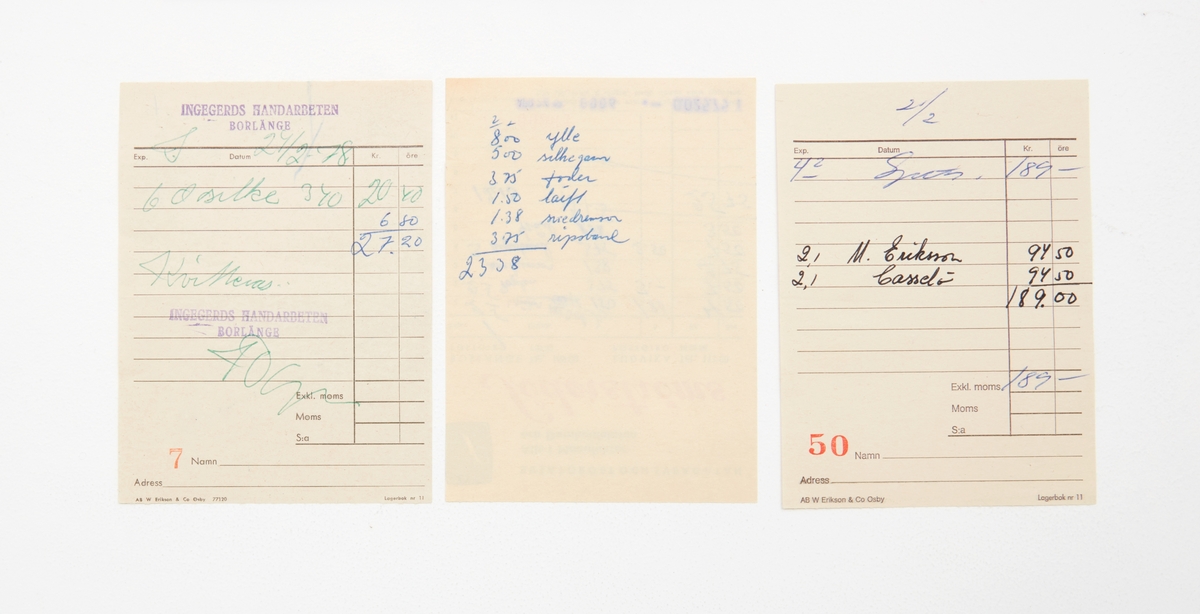 INGEGERDS HANDARBETEN
BORLÄNGE
24/2 78
Exp. Datum Kr. öre
6 Osilke 340 20 40
6 80
27.20
Kvitteras..
INGEGERDS HANDARBETEN
BORLÄNGE
Exkl. moms
Moms
S:a
7 Namn
Adress
AB W Erikson & Co Osby 77520 Lagerbok nr 11
8.00 ylle
5.00 silkegarn
3.75 foder
1.50 taift
1.38
3.75 ripsband
23 38
21/2
Exp. Datum Kr. öre
189 –
2,1 M. Eriksson 94 50
2,1 94 50
189.00
Exkl. moms 189 –
Moms
S:a
50 Namn
Adress
AB W Erikson & Co Osby Lagerbok nr 11